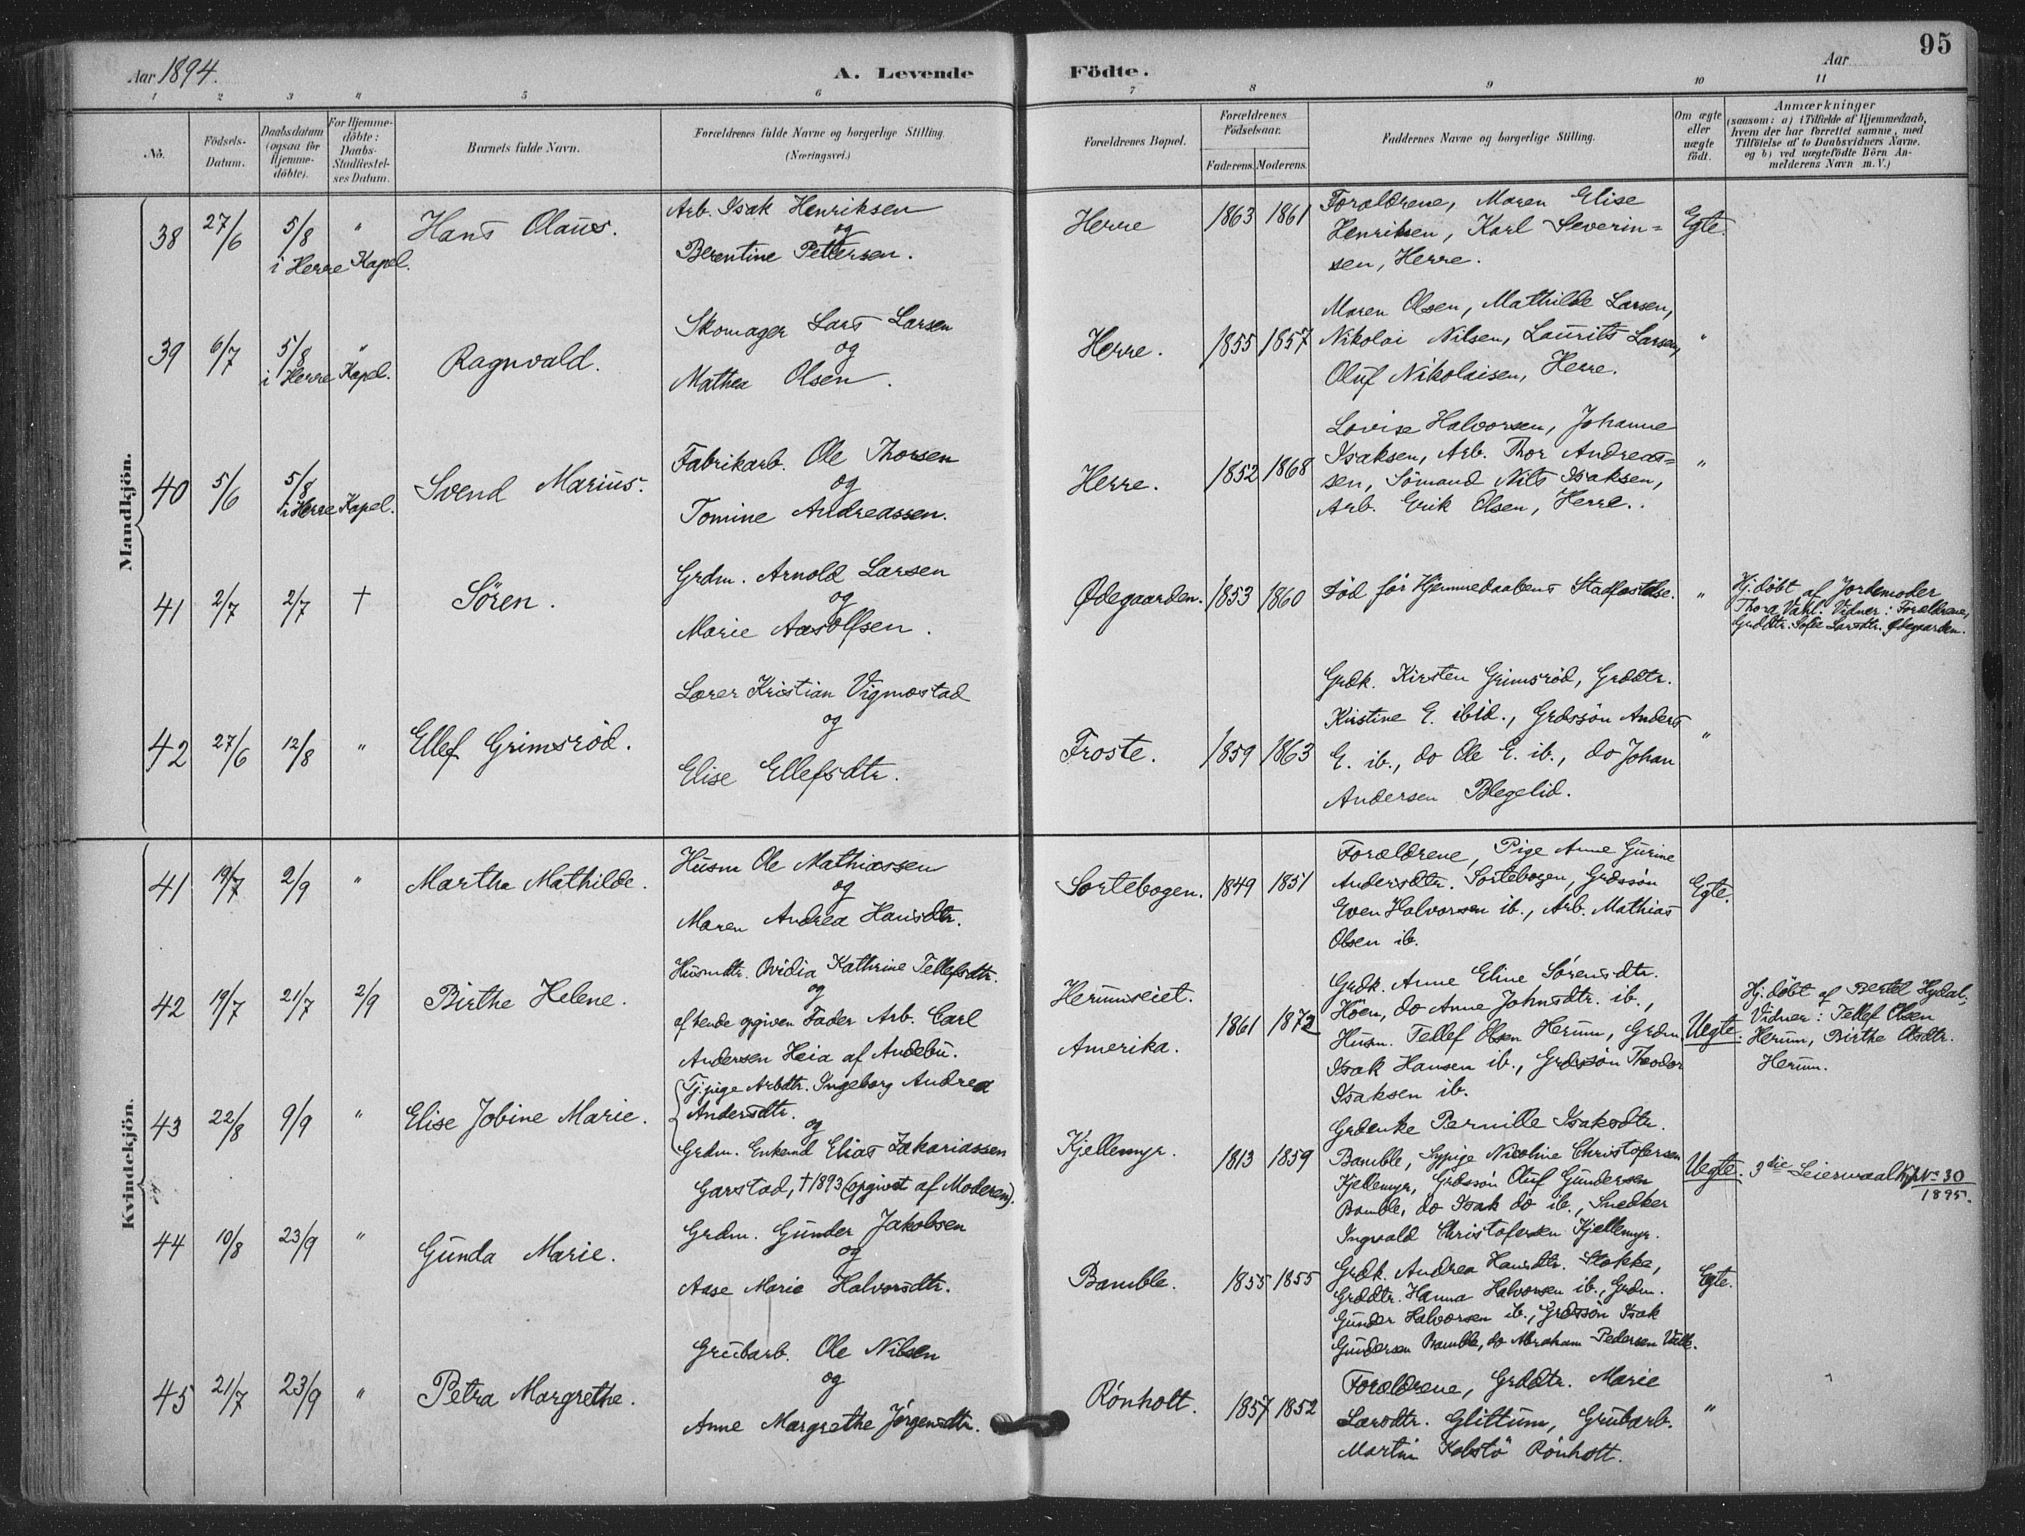 Aar 1894. A. Levende Födte. Aar 95
1 2 3 " 5 6 7 8 9 10 11
No.
Födsels-
Datum.
Daabsdatum
(ogsaa for
Hjemme-
döbte).
For Hjemme-
döbte:
Daabs-
Stadfæstel-
ses Datum.
Barnets fulde Navn.
Forældrenes fulde Navne og borgerlige Stilling.
(Næringsvei.)
Forældrenes Bopæl.
Forældrenes
Födselsaar.
Faderens. Moderens.
Faddernes Navne og borgerlige Stilling.
Om ægte
eller
uægte
födt.
Anmærkninger
(saasom: a) i Tilfælde af Hjemmedaab,
hvem der har forrettet samme, med
Tilföielse af to Daabsvidners Navne,
og b) ved uægtefödte Börn An-
melderens Navn m. V.)
Mandkjön.
38 27/6 5/8 " Hans Olaus.
i Herre Kapel.
Arb. Isak Henriksen
og
Berentine Pettersen.
Herre 1863 1861
Forældrene, Maren Elise
Henriksen, Karl Severin=
sen, Herre.
Egte.
39 6/7 5/8 " Ragnvald.
i Herre Kapel.
Skomager Lars Larsen
og
Mathea Olsen.
Herre. 1855 1857
Maren Olsen, Mathilde Larsen,
Nikolai Nilsen, Laurits Larsen,
Oluf Nikolaisen, Herre.
"
40 5/6 5/8 Svend Marius.
i Herre Kapel.
Fabrikarb. Ole Thorsen
og
Tomine Andreassen.
Herre. 1852 1868
Lovise Halvorsen, Johanne
Isaksen, Arb. Thor Andreas=
sen, Sömand Nils Isaksen,
Arb. Erik Olsen, Herre.
"
41 2/7 2/7 † Sören.
Grdm. Arnold Larsen
og
Marie Aasolfsen.
Ødegaarden. 1853 1860
Död før Hjemmedaabens Stadfæstelse.
"
Hj.döbt af Jordemoder
Thora Vahl. Vidner: Forældrene,
Grddtr. Sofie Larsdtr. Ødegaarden.
42 27/6 12/8 " Ellef Grimsröd.
Lærer Kristian Vigmostad
og
Elise Ellefsdtr.
Froste. 1859 1863
Grdk. Kirsten Grimsröd, Grddtr.
Kirstine E. ibid., Grdssön Anders
E. ib., do Ole E. ib., do Johan
Andersen Blegelid.
"
Kvindekjön.
41 19/7 2/9 " Martha Mathilde.
Husm Ole Mathiassen
og
Maren Andrea Hansdtr.
Sortebogen. 1849 1851
Forældrene, Pige Anne Gurine
Andersdtr. Sortebogen, Grdssön
Even Halvorsen ib., Arb. Mathias
Olsen ib.
Egte.
42 19/7 21/7 2/9 Birthe Helene.
Husmdtr. Ovidia Kathrine Tellefsdtr.
og
af hende opgiven Fader Arb. Carl
Andersen Heia af Andebu.
Herumseiet.
Amerika.
1861 1872
Grdk. Anne Eline Sörensdtr.
Höen, do Anne Johnsdtr. ib.,
Husm. Tellef Olsen Herum, Grdm.
Isak Hansen ib., Grdssön Theodor
Isaksen ib.
Uegte.
Hj.döbt af Bertel Hydal.
Vidner: Tellef Olsen
Herum, Birthe Olsdtr.
Herum.
43 22/8 9/9 " Elise Jobine Marie.
Tj.pige Arbdtr. Ingeborg Andrea
Andersdtr.
og
Grdm. Enkemd Elias Zakariassen
Garstad, † 1893 (opgivet af Moderen).
Kjellemyr. 1813 1859
Grdenke Pernille Isaksdtr.
Bamble, Sypige Nicoline Christofersen
Kjellemyr, Grdssön Oluf Gundersen
Bamble, do Isak do ib., Snedker
Ingvald Christofersen Kjellemyr.
Uegte.
3die Leiermaal No 30
1895.
44 10/8 23/9 " Gunda Marie.
Grdm. Gunder Jakobsen
og
Aase Marie Halvorsdtr.
Bamble. 1855 1855
Grdk. Andrea Hansdtr. Stokke,
Grddtr. Hanna Halvorsen ib., Grdm.
Gunder Halvorsen ib., Grdssön Isak
Gundersen Bamble, do Abraham Pedersen Valle.
Egte.
45 21/7 23/9 " Petra Margrethe.
Grubarb. Ole Nilsen
og
Anne Margrethe Jörgensdtr.
Rönholt. 1857 1852
Forældrene, Grddtr. Marie
Larsdtr. Glittum, Grubarb.
Martin Rönholt.
"